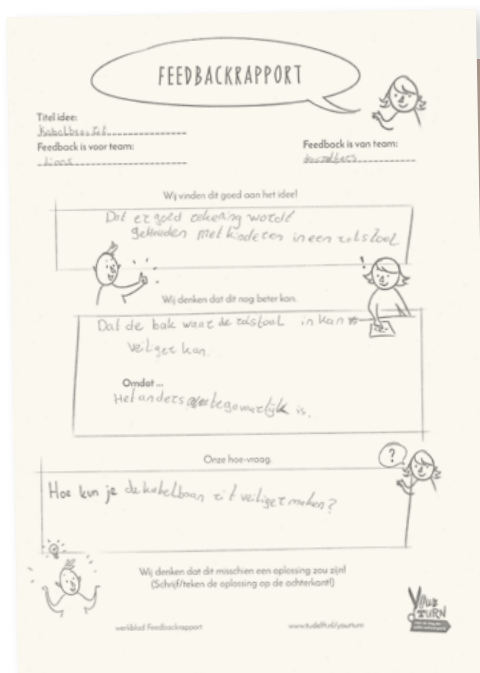 FEEDBACKRAPPORT
Titel idee:
Kabelbaanzit
Feedback is voor team:
Lions
Feedback is van team:
Wij vinden dit goed aan het idee!
Dat er goed rekening wordt
gehouden met kinderen in een rolstoel
Wij denken dat dit nog beter kan.
Dat de bak waar de rolstoel in kan
veiliger kan.
Omdat ...
Het anders ongelijk is.
Onze hoe-vraag.
Hoe kun je de kabelbaan zit veiliger maken?
?
Wij denken dat dit misschien een oplossing zou zijn!
(Schrijf/teken de oplossing op de achterkant!)
YOUR
TURN
werkblad Feedbackrapport
www.tudelft.nl/yourturn